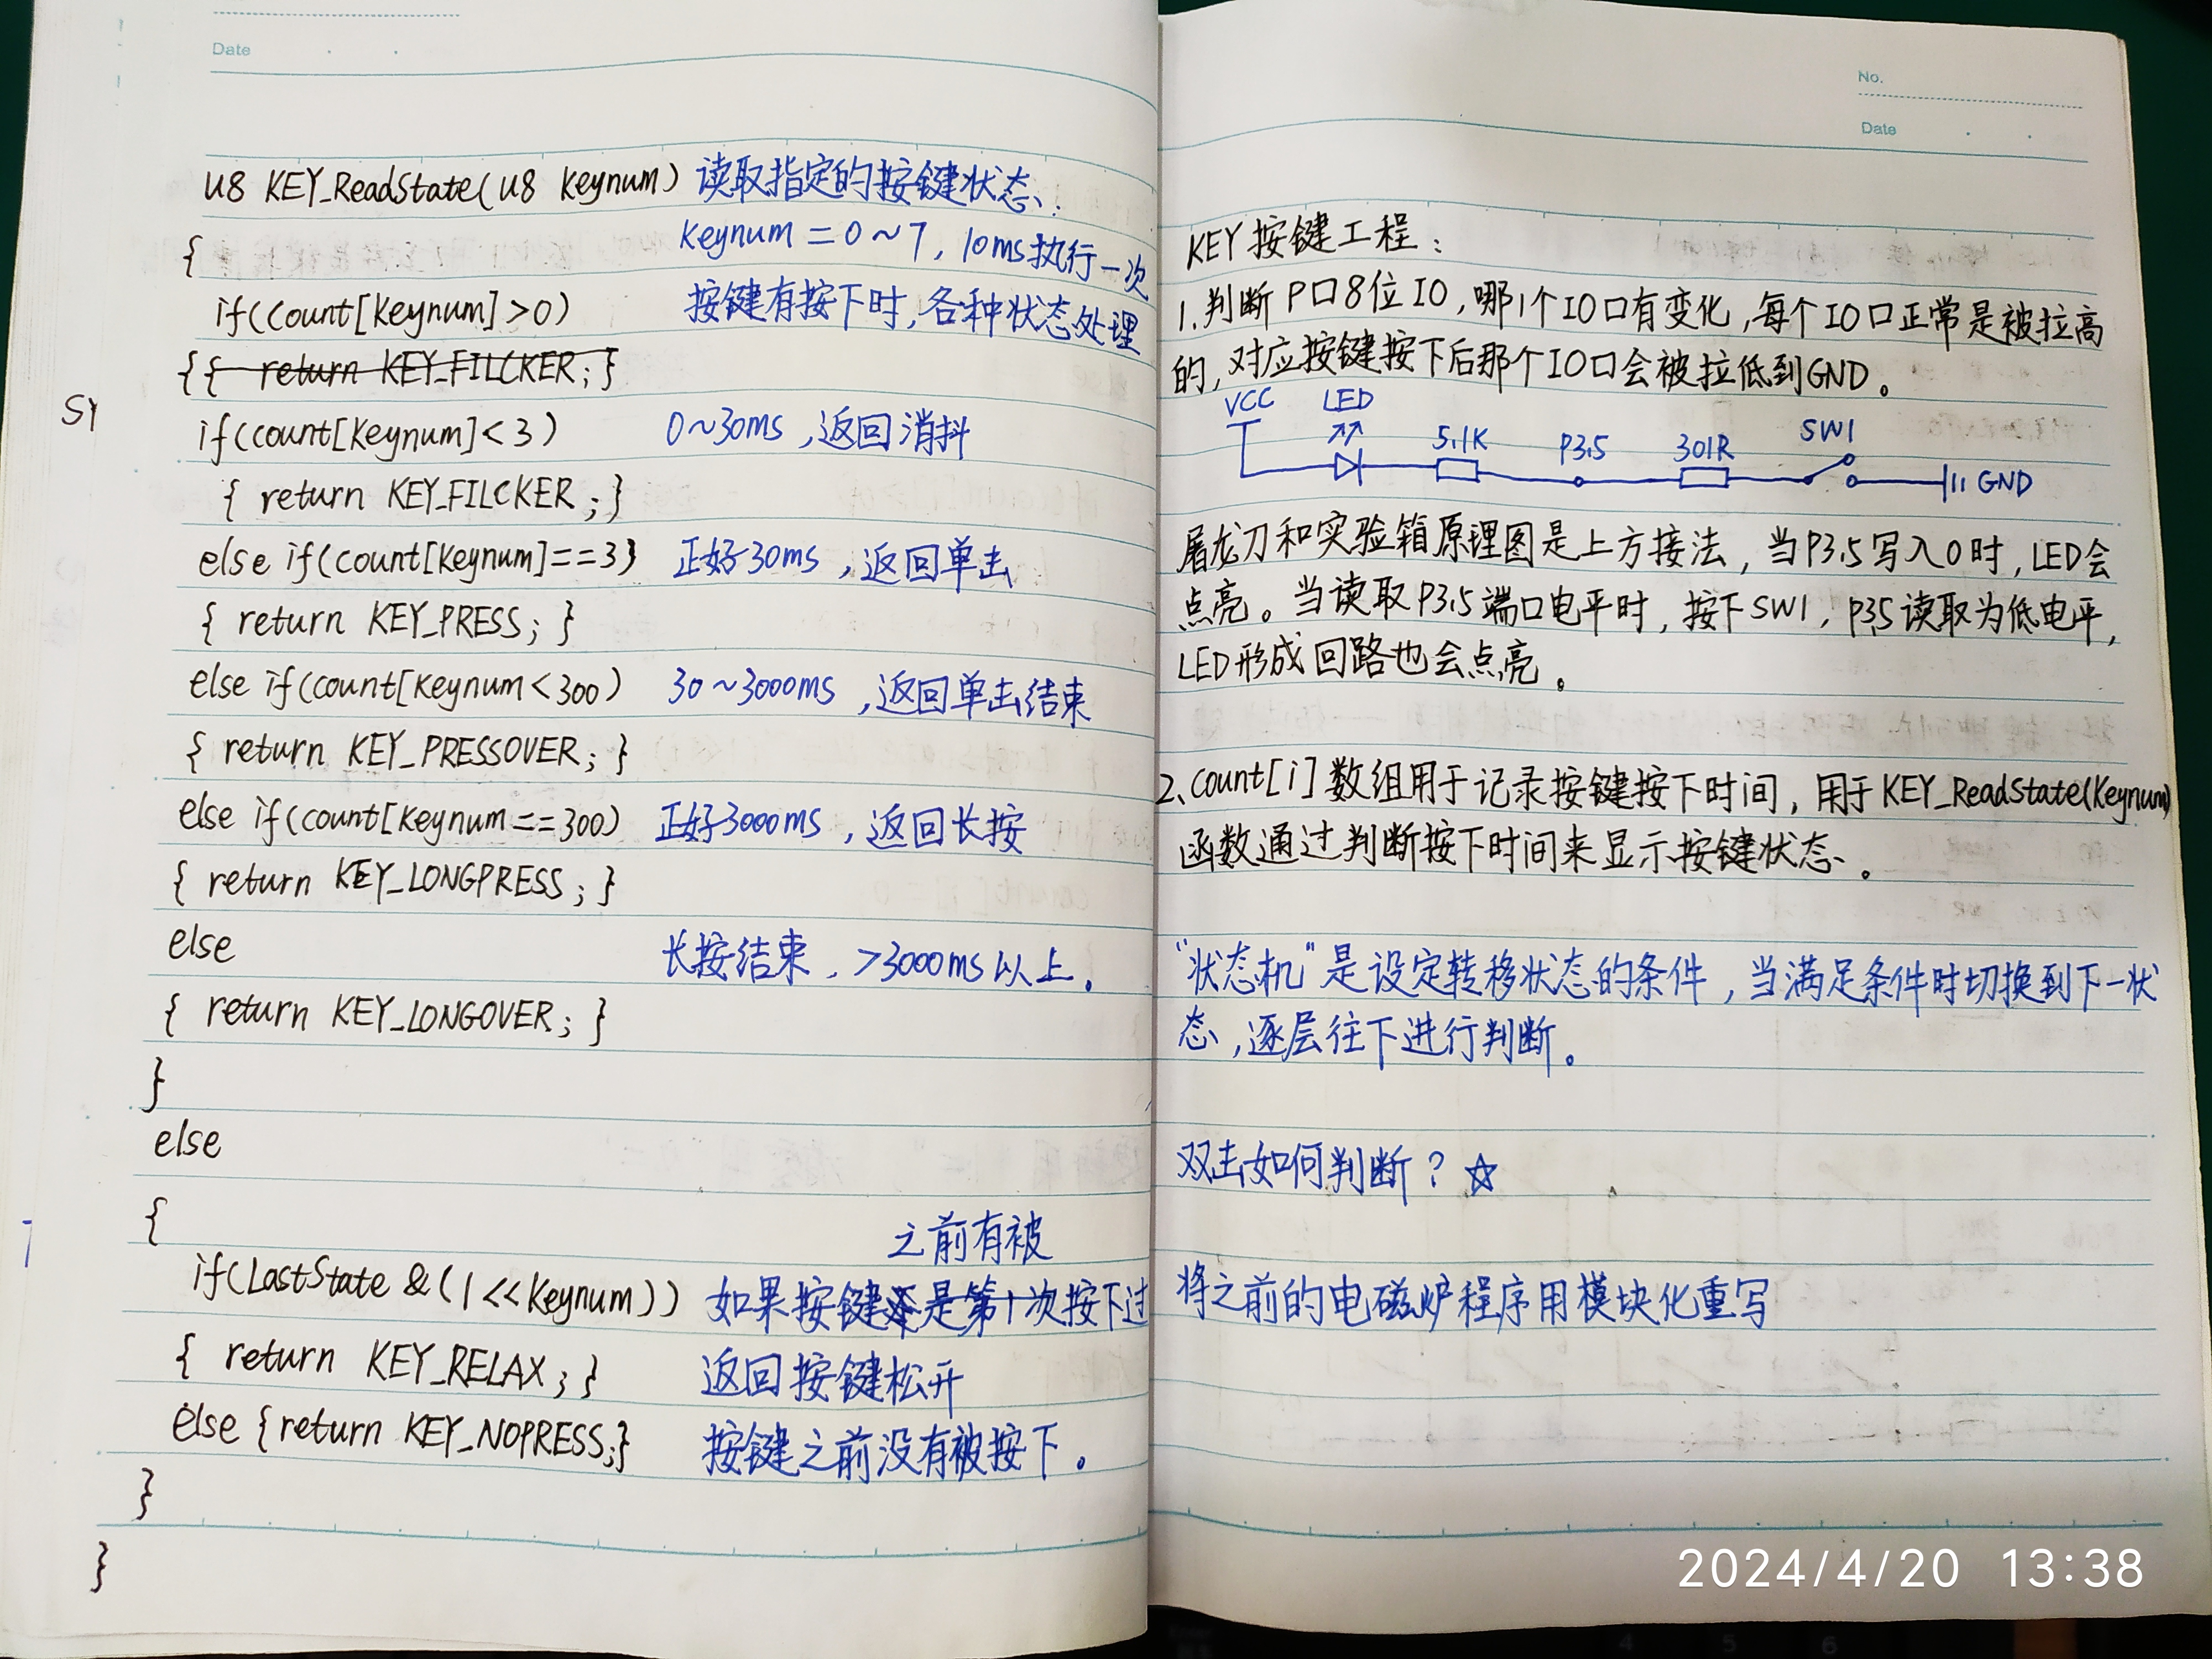 Date
u8 KEY_ReadState(u8 Keynum) 读取指定的按键状态.
{ Keynum=0~7, 10ms执行一次
if(count[Keynum]>0) 按键有按下时,各种状态处理
{{ return KEY_FILCKER; }
SY
if(count[Keynum]<3) 0~30ms,返回消抖
{ return KEY_FILCKER; }
else if(count[Keynum]==3) 正好30ms,返回单击
{ return KEY_PRESS; }
else if(count[Keynum<300) 30~3000ms,返回单击结束
{ return KEY_PRESSOVER; }
else if(count[Keynum==300) 正好3000ms,返回长按
{ return KEY_LONGPRESS; }
else 长按结束,>3000ms以上.
{ return KEY_LONGOVER; }
}
else
{
之前有被
if(LastState &(1<<Keynum)) 如果按键是第1次按下过
{ return KEY_RELAX; } 返回按键松开
else {return KEY_NOPRESS;} 按键之前没有被按下。
}
}
No.
Date
KEY按键工程:
1.判断P口8位IO,哪1个IO口有变化,每个IO口正常是被拉高
的,对应按键按下后那个IO口会被拉低到GND。
VCC LED 5.1K P3.5 301R SW1 GND
屠龙刀和实验箱原理图是上方接法,当P3.5写入0时,LED会
点亮。当读取P3.5端口电平时,按下SW1,P3.5读取为低电平,
LED形成回路也会点亮。
2、count[i]数组用于记录按键按下时间,用于KEY_ReadState(Keynum)
函数通过判断按下时间来显示按键状态。
“状态机”是设定转移状态的条件,当满足条件时切换到下一状
态,逐层往下进行判断。
双击如何判断?☆
将之前的电磁炉程序用模块化重写
2024/4/20 13:38